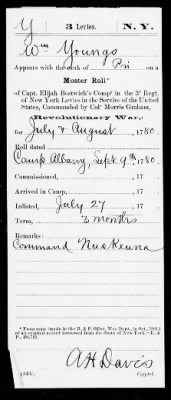 Y 3 Levies. N. Y.
Wm Youngs
Appears with the rank of Pri on a
Muster Roll*
of Capt. Elijah Bostwick's Comp'y in the 3d Regt.
of New York Levies in the Service of the United
States, Commanded by Col° Morris Graham,
(Revolutionary War,)
for July & August, 1780.
Roll dated
Camp Albany, Sept. 9th, 1780.
Commissioned, , 17
Arrived in Camp, , 17
Inlisted, July 27, 17
Term, 3 months
Remarks:
Command Nuskeuna
*From copy (made in the R. & P. Office, War Dept., in
of an original record borrowed from the State of New York.—R. &
P.
A H Davis
Copyist.